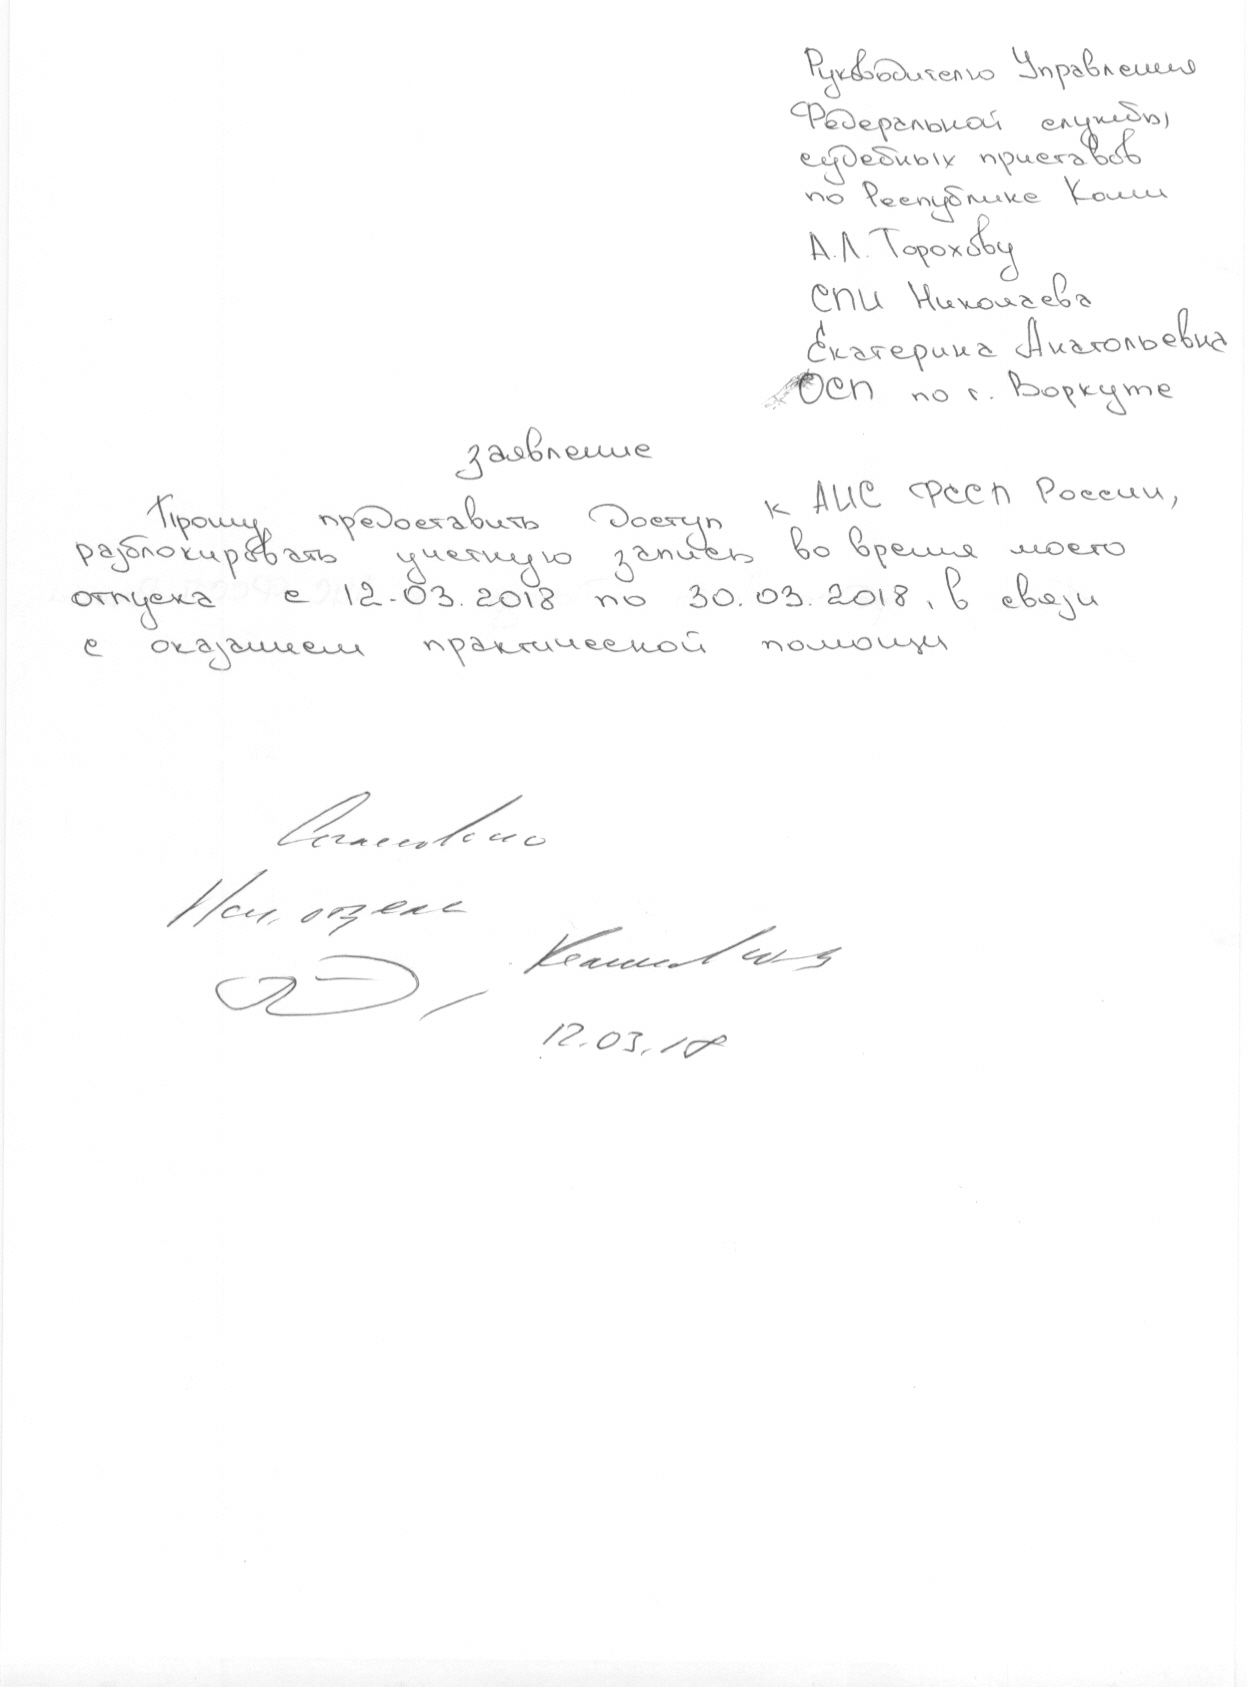 Руководителю Управления
Федеральной службы
судебных приставов
по Республике Коми
А.Л. Торохову
СПИ Николаева
Екатерина Анатольевна
ОСП по г. Воркуте
заявление
Прошу предоставить доступ к АИС ФССП России,
разблокировать учетную запись во время моего
отпуска с 12.03.2018 по 30.03.2018, в связи
с оказанием практической помощи
Согласовано
Нач. отдела
12.03.18